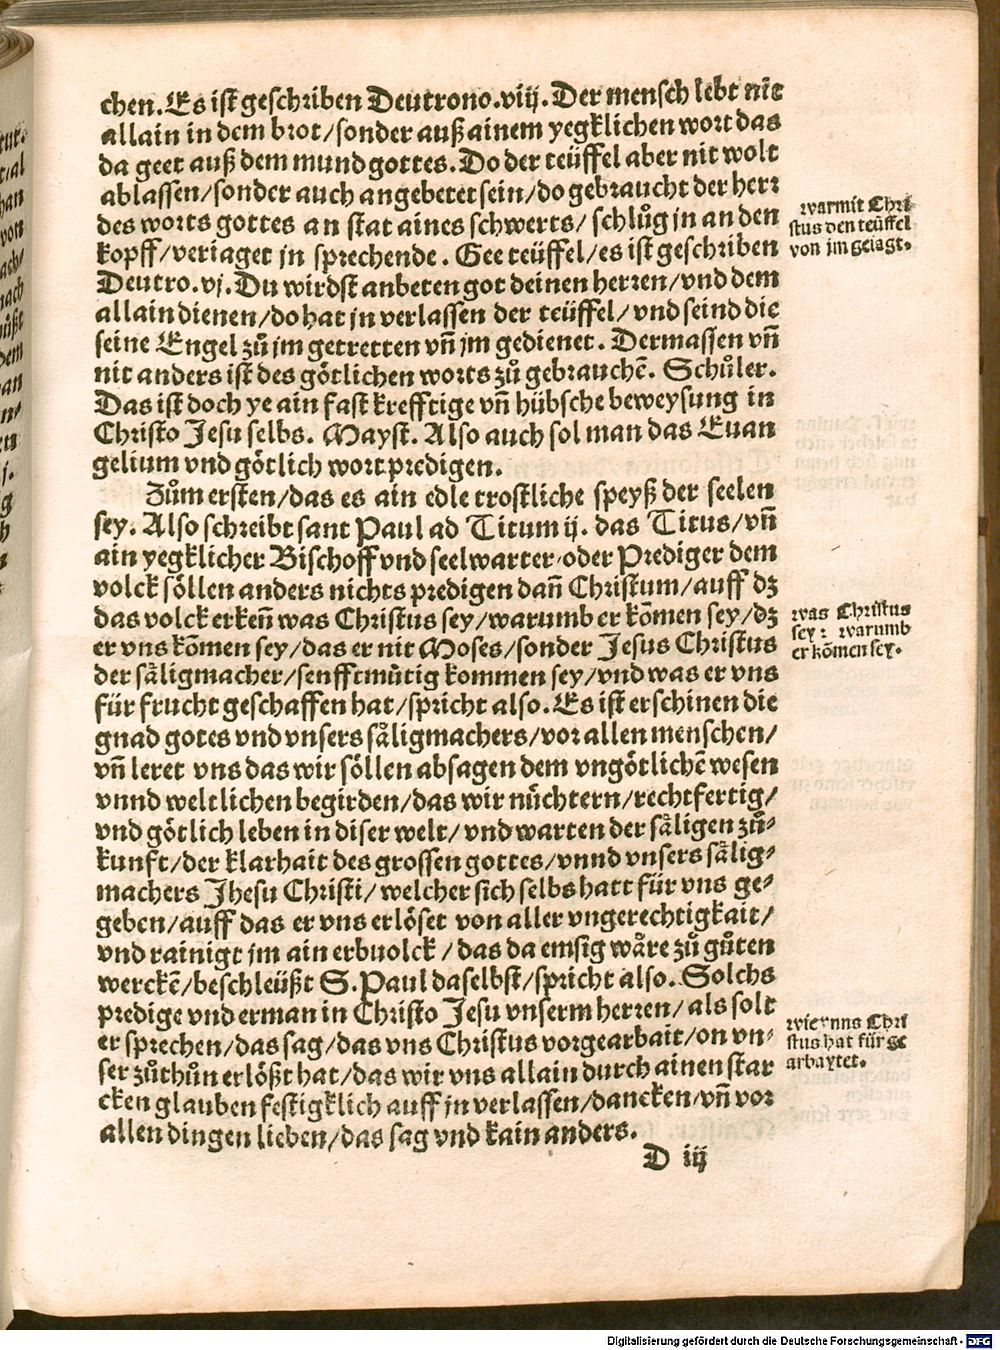 chen. Es ist geschriben Deutrono. viij. Der mensch lebt nit
allain in dem brot/ sonder auß ainem yegklichen wort das
da geet auß dem mund gottes. Do der teüffel aber nit wolt
ablassen/ sonder auch angebetet sein/ do gebraucht der herr
des worts gottes an stat aines schwerts/ schlůg jn an den
kopff/ veriaget jn sprechende. Gee teüffel/ es ist geschriben
Deutro. vj. Du wirdst anbeten got deinen herren/ vnd dem
allain dienen/ do hat jn verlassen der teüffel/ vnd seind die
seine Engel zů jm getretten vñ jm gedienet. Dermassen vñ
nit anders ist des götlichen worts zů gebrauchẽ. Schůler.
Das ist doch ye ain fast krefftige vñ hübsche beweysung in
Christo Jesu selbs. Mayst. Also auch sol man das Euan
gelium vnd götlich wort predigen.
Zům ersten/ das es ain edle trostliche speyß der seelen
sey. Also schreibt sant Paul ad Titum ij. das Titus/ vñ
ain yegklicher Bischoff vnd seelwarter oder Prediger dem
volck söllen anders nichts predigen dañ Christum/ auff dz
das volck erkeñ was Christus sey/ warumb er kõmen sey/ dz
er vns kõmen sey/ das er nit Moses/ sonder Jesus Christus
der såligmacher/ senfftmůtig kommen sey/ vnd was er vns
für frucht geschaffen hat/ spricht also. Es ist erschinen die
gnad gotes vnd vnsers såligmachers/ vor allen menschen/
vñ leret vns das wir söllen absagen dem vngötlichẽ wesen
vnnd weltlichen begirden/ das wir nůchtern/ rechtfertig/
vnd götlich leben in diser welt/ vnd warten der såligen zů-
kunft/ der klarhait des grossen gottes/ vnnd vnsers sålig-
machers Jhesu Christi/ welcher sich selbs hatt für vns ge-
geben/ auff das er vns erlöset von aller vngerechtigkait/
vnd rainigt jm ain erbuolck/ das da emsig wåre zů gůten
werckẽ/ beschleüßt S. Paul daselbst/ spricht also. Solchs
predige vnd erman in Christo Jesu vnserm herren/ als solt
er sprechen/ das sag/ das vns Christus vorgearbait/ on vn-
ser zůthůn erlößt hat/ das wir vns allain durch ainen star
cken glauben festigklich auff jn verlassen/ dancken/ vñ vor
allen dingen lieben/ das sag vnd kain anders.
D iij
warmit Chri
stus den teüffel
von jm geiagt.
was Christus
sey: warumb
er kõmen sey.
wie vnns Chri
stus hat für ge
arbaytet.
Digitalisierung gefördert durch die Deutsche Forschungsgemeinschaft - DFG